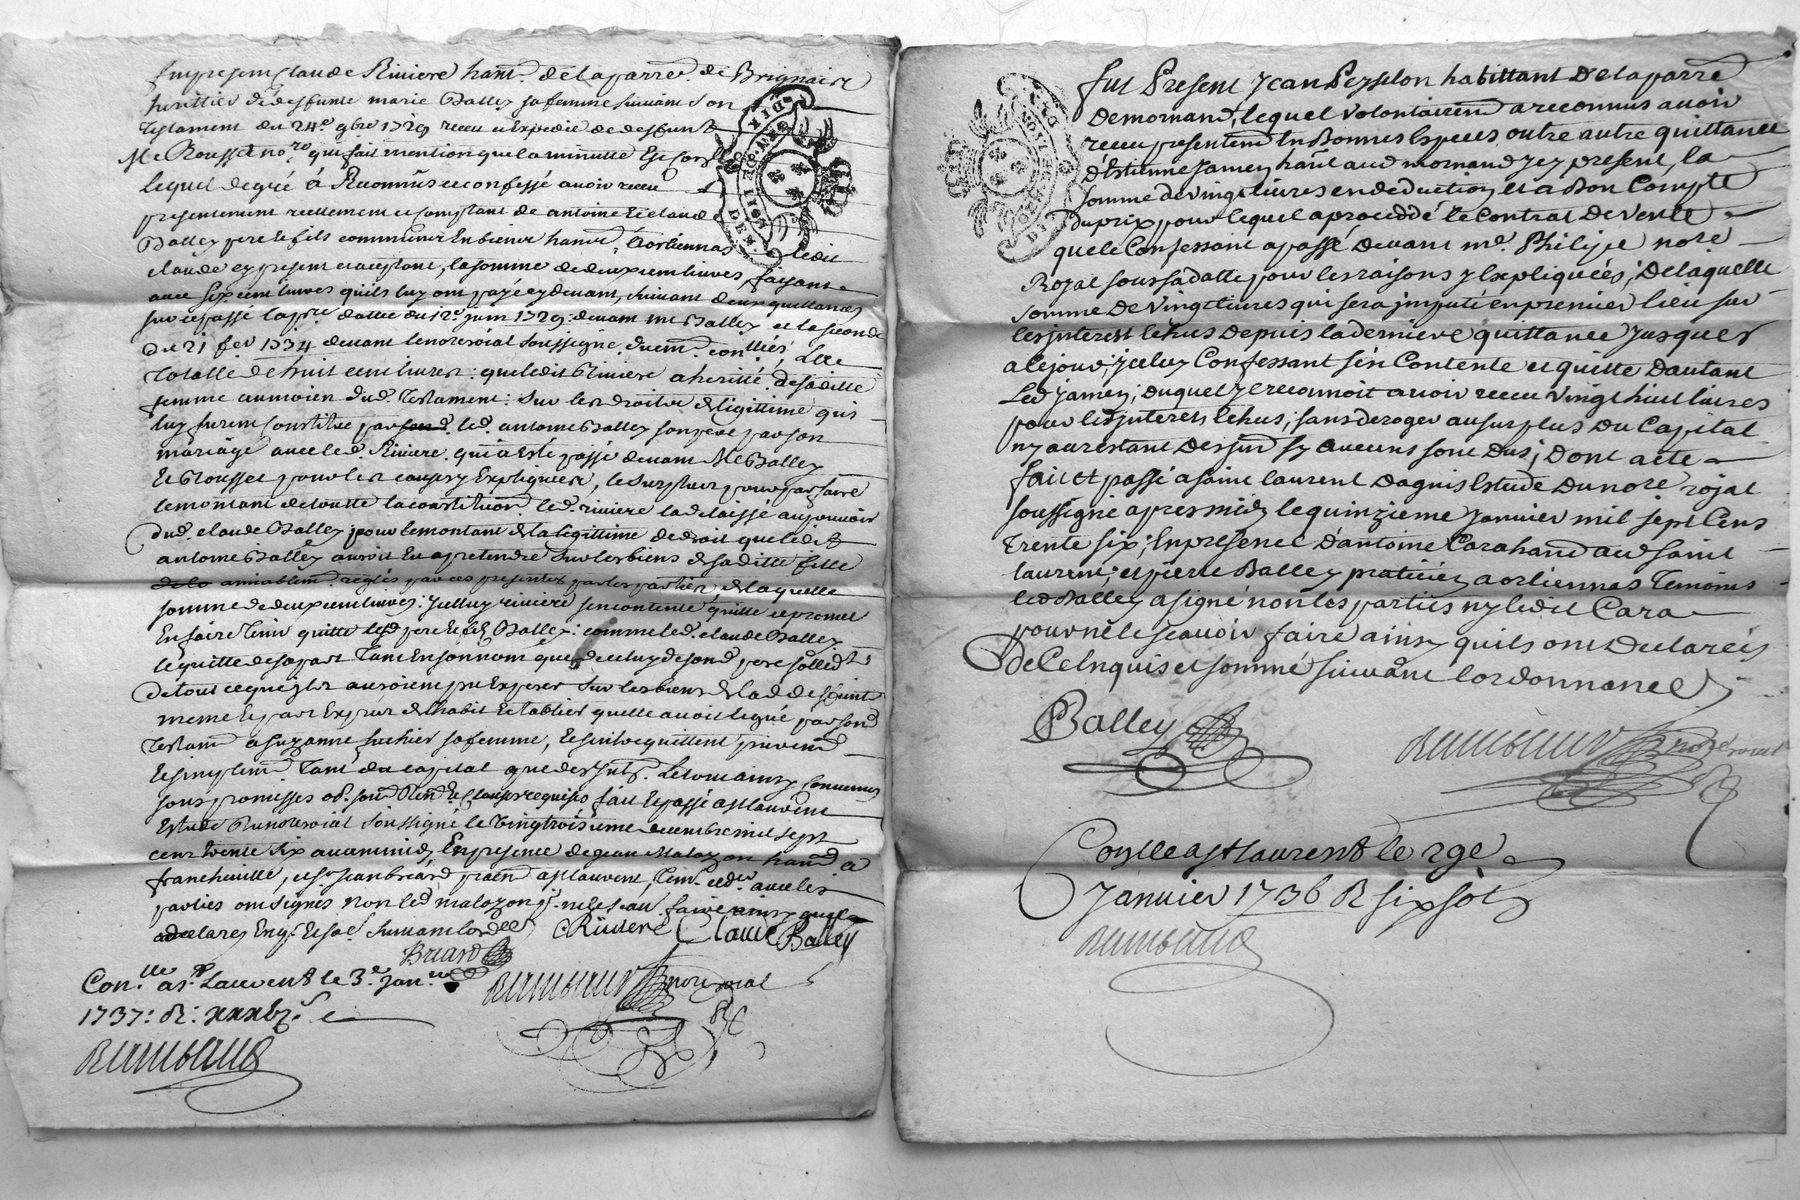 fut present Claude Riviere hant. de la parre. de Brignais
herittier de deffunte marie Balley sa femme suivant son
Testament du 24e 9bre 1729 receu et Expedié de deffunt
Me Rousset nore qui fait mention que la minutte Est
lequel de gré à Reconnus et confessé avoir receu
presentement reellement et comptant de antoine et claude
Balley pere et fils communs En biens hants. à orliennas ledit
claude cy present et acceptant, la somme de deux cent livres faisant
avec six cent livres qu'ils luy ont payé cy devant, suivant deux quittances
sur ce passé la pre. dattée du 12e juin 1729: devant me Balley et la seconde
du 21 fev 1734 devant le nore roial soussigné
Totalle de huit cent livres: que ledit Riviere a heritté de saditte
femme au moien dud. Testament: sur les droits de legittime qui
luy furent constitué par led. antoine Balley son pere par son
mariage avec led. Riviere, qui à esté passé devant Me Balley
et Rousset pour les causes y Expliquées, le surplus pour parfaire
le montant de toutte la constitution led. riviere la delaissé
dud. claude Balley pour le montant de la legittime de droit que ledit
antoine Balley auroit Eu a pretendre sur les biens de saditte fille
amiablemt. reglés par ces presentes par les parties de laquelle
somme de deux cent livres: jcelluy riviere sen contente quitte et promet
En faire tenir quitte lesd pere et fils Balley: comme led. claude Balley
le quitte de sa part Tant En son nom que de celuy de sond. pere
de tout ce qu'ils auroient pu Exposer sur les biens de lad deffunte
meme les part Exprès de habit et tablier quelle avoit legué par sond
Testamt a suzanne fuchier sa femme, les
et simplemt. Tant du capital que des jnts. Le tout ainsy convenus
sous promesses ob. soumn Renon Et Clauses requises fait et passé a st laurent
Estude du nore roial soussigné le vingtroisieme decembre mil sept
cent trente six avant midy, En presence de jean Malozon hant. à
francheville, et sr jean briard praten a st laurent, Tems.
parties ont signés non led malozon pr. ne le scavoir faire ainsy quil
a declarés Enqs. Et so. suivant lord
Briard Riviere Claude Balley
Conlle a st Laurent le 3e janver
1737: R: xxx
Raimbaud nore roial
Raimbaud
fut Present Jean Peyselon habittant De la parre
De mornand, lequel Volontairemt a reconnus avoir
receu presentemt En Bonnes Especes outre autre quittance
d'Estienne Jamey hant aud mornand jcy present, la
somme de vingt livres en deduction et a Bon Compte
du prix pour lequel a procedde le Contrat De Vente
que le Confessant a passé Devant me. Philipe nore
Royal sous sa datte pour les raisons y Expliquées; De laquelle
somme De Vingt livres qui sera jmputé en premier lieu sur
les jnterest Echus Depuis la derniere quittance jusques
a le jour, jceluy Confessant s'en Contente et quitte Dautant
Led Jamey, Duquel Il reconnoit avoir receu Vingt huit livres
pour les jnterets Echus; sans deroger au surplus Du Capital
ny au restant Des jnts sy Aucuns sont Dus; Dont acte
fait et passé a saint laurent Dagnis Estude Du nore royal
soussigné apres midy le quinzieme janvier mil sept Cens
trente six; En presence D'antoine Carahand aud saint
laurent; et pierre Balley praticien a orliennas Temoins
led Balley a signé non les parties ny ledit Cara
pour ne le scavoir faire ainsy quils ont Declarés
De Ce Enquis et sommé suivant lordonnance
Balley Raimbaud nore roial
Conlle a st laurent le 29e
Janvier 1736 R six sols
Raimbaud